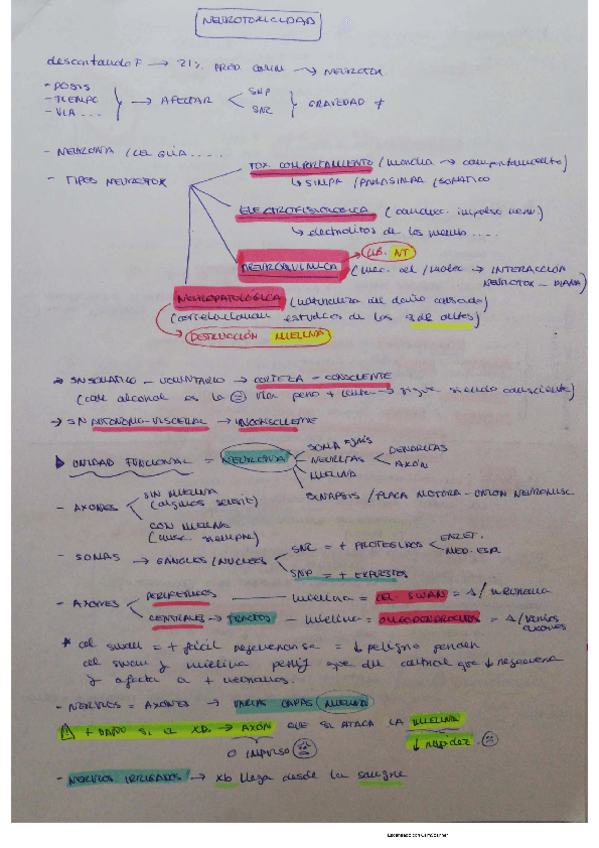 NEUROTOXICIDAD
descontando F → 21% PROD. COMUN → NEUROTOX
- DOSIS
- TIEMPO
- VIA ...
→ AFECTAR
SNP
SNC
GRAVEDAD ≠
- NEURONA / CEL GLIA .....
- TIPOS NEUROTOX
TOX. COMPORTAMIENTO (marcha → comportamiento)
↳ SIMPA / PARASIMPA / SOMATICO
ELECTROFISIOLOGICA (conducc. impulso nerv.)
↳ electrolitos de las memb ....
LIB. NT
NEUROQUIMICA (mec. cel / molec → INTERACCIÓN
NEUROTOX - DIANA)
NEUROPATOLÓGICA (naturaleza del daño causado)
(correlacionan estudios de las 3 de antes)
DESTRUCCIÓN MIELINA
→ SN SOMATICO - VOLUNTARIO → CORTEZA - CONSCIENTE
(con alcohol es la misma via pero + lenta → sigue siendo consciente)
→ SN AUTONOMO-VISCERAL → INCONSCIENTE
UNIDAD FUNCIONAL = NEURONA
SOMA
NEURITAS
DENDRITAS
AXÓN
MIELINA
SINAPSIS / PLACA MOTORA - UNION NEUROMUSC.
- AXONES
SIN MIELINA
(algunos sensit)
CON MIELINA
(musc. siempre)
- SOMAS → GANGLIOS / NUCLEOS
SNC = + PROTEGIDOS
ENCEF.
MED. ESPI
SNP = + EXPUESTOS
- AXONES
PERIFERICOS — MIELINA = CEL. SWAN = 1 / neurona
CENTRALES → TRACTOS - MIELINA = OLIGODENDROCITOS = 1 / varios
axones
* cel swan = + fácil regenerarse = ↓ peligro perder
cel swan y mielina perif que del central que ↓ regenera
y afecta a + neuronas.
- NERVIOS = AXONES → VARIAS CAPAS MIELINA
⚠ + DAÑO SI EL XB. → AXÓN QUE SI ATACA LA MIELINA
0 IMPULSO ☹
↓ rapidez. ☹
- NERVIOS IRRIGADOS → xb llega desde la sangre
Escaneado con CamScanner